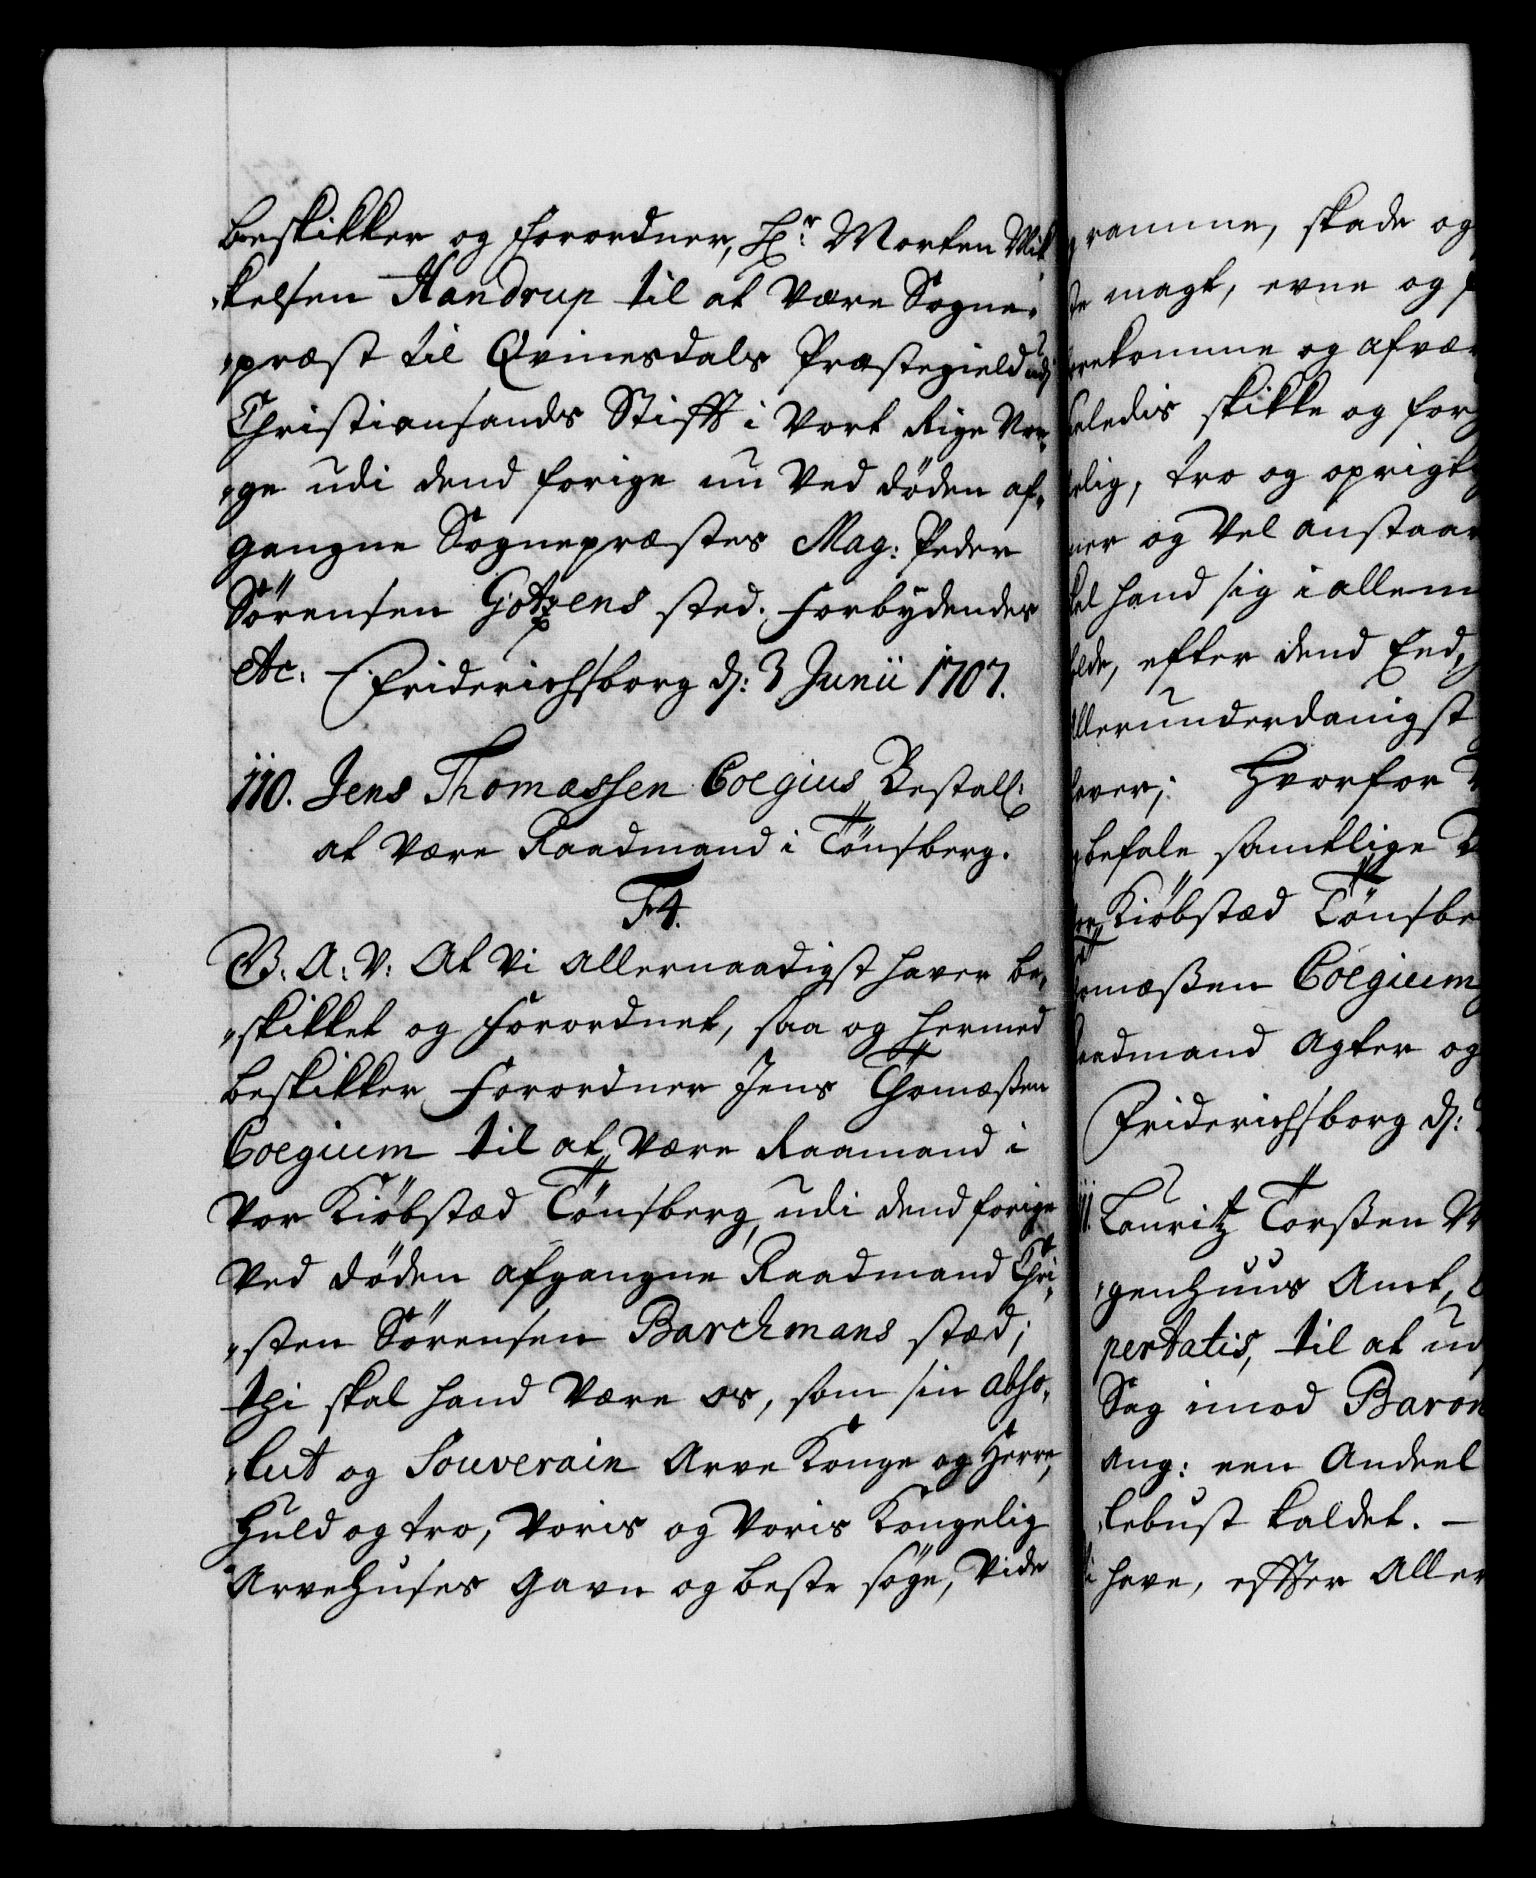 beskikker og forordner, Hr: Morten Mik
„kelsen Handrup til at være Sogne„
„præst til Qvinesdals Præstegield udj
Christiansands Stifft i Vort Rige Nor„
„ge udi dend forige nu ved døden af„
gangne Sognepræstes Mag: Peder
Sörensen Götzens sted. Forbydendes
etc: Friderichsborg d: 3 Junii 1707.
110. Jens Thomassen Coegius Bestall:
at være Raadmand i Tönsberg.
F4.
G. A. V: At Vi allernaadigst haver be„
„skikket og forordnet, saa og hermed
beskikker forordner Jens Thomæßen
Coegium til at være Raamand i
vor Kiöbstæd Tönsberg, udi dend forige
ved döden afgangne Raadmand Chri„
„sten Sörensen Barchmans stæd;
thi skal hand være os, som sin abso„
„lut og Souverain Arve Konge og Herre,
huld og tro, voris og voris Kongelig
Arvehuses gavn og beste söge, vide
ramme, skade og
magt, evne og
komme og afvær
ledis skikke og for
lig, tro og oprigt
og vel anstaar
hand sig i allem
efter dend Eed,
allerunderdanigst
Hvorfor
befale samtlige
Kiöbstæd Tönsbe
omæßen Coegium
aadmand agter og
Friderichsborg d:
111. Lauritz Torßen
„genhuus Amt,
pertatis, til at ud
Sag imod Baron
ang: een Andeel
lebust kaldet. –
have, effter Aller